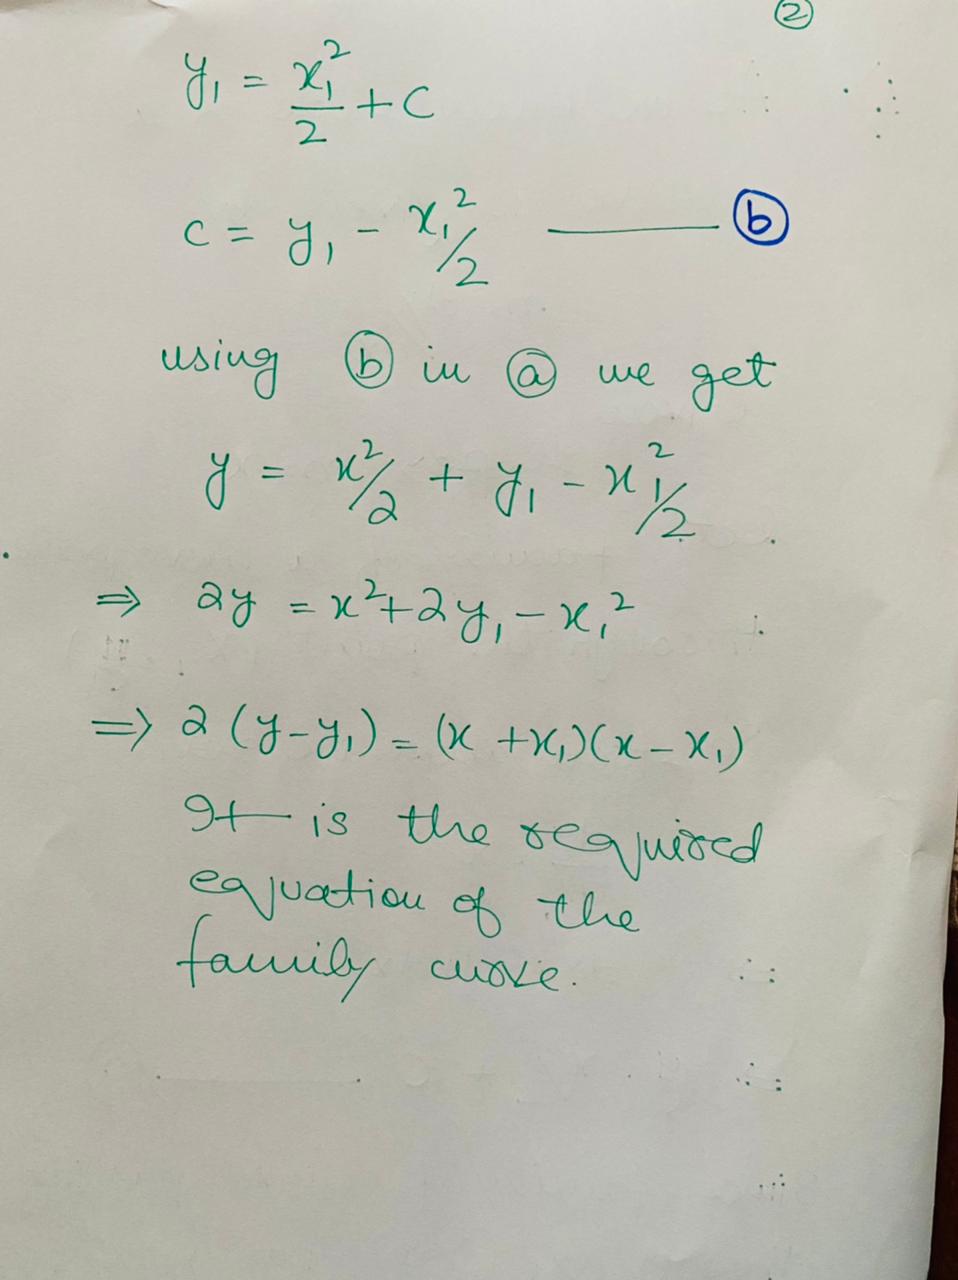 ②
y₁ = x₁²/2 + c
c = y₁ - x₁²/2 ——— ⓑ
using ⓑ in ⓐ we get
y = x²/2 + y₁ - x₁²/2
⇒ 2y = x² + 2y₁ - x₁²
⇒ 2(y-y₁) = (x + x₁)(x - x₁)
It is the required
equation of the
family curve.